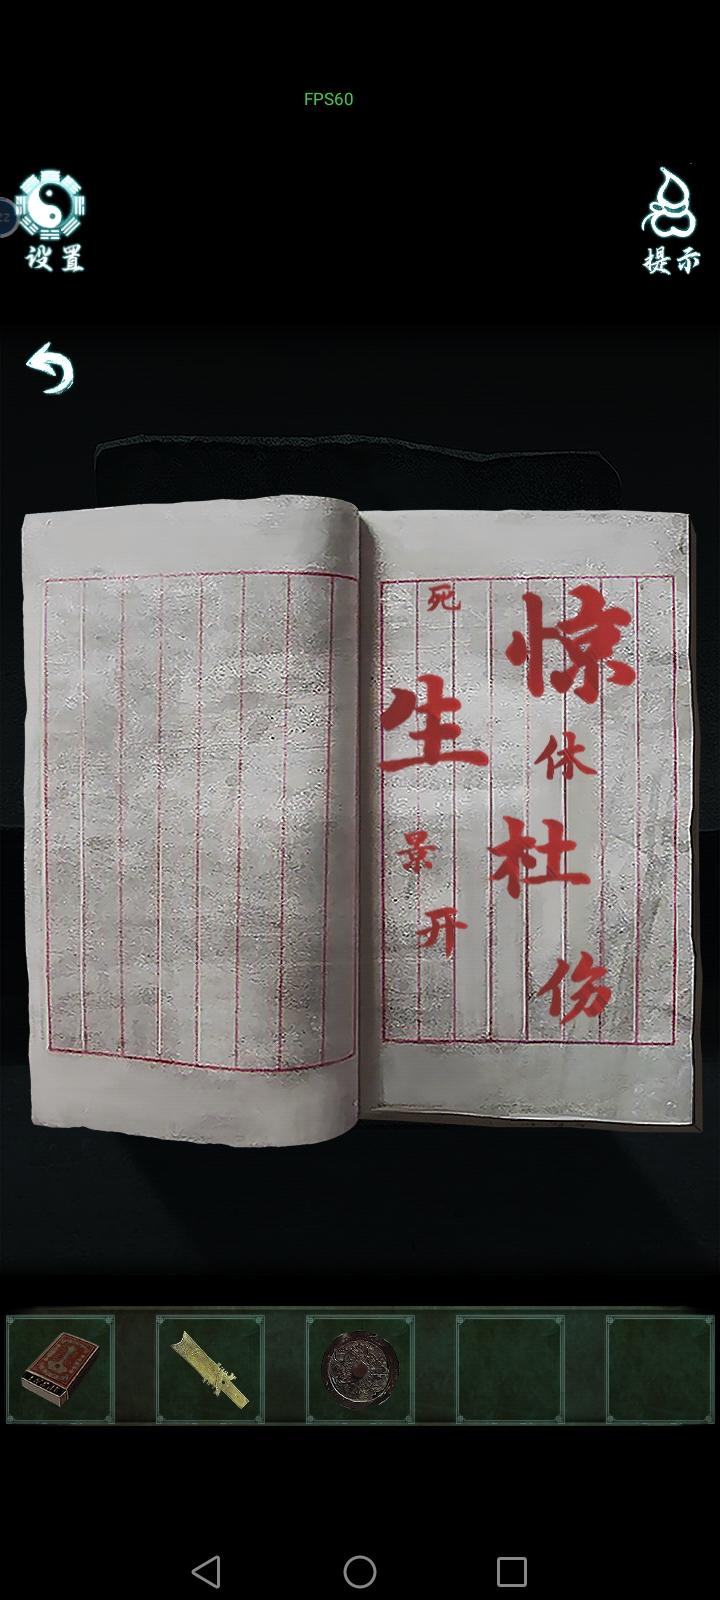 FPS60
设置
提示
惊
休
杜
伤
死
生
景
开